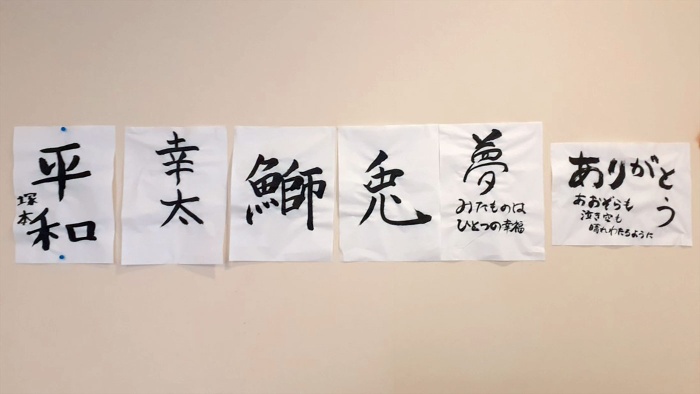 平和
塚本
幸太
鰤
兎
夢
みたものは
ひとつの幸福
ありがとう
あおぞらも
泣き空も
晴れわたるように